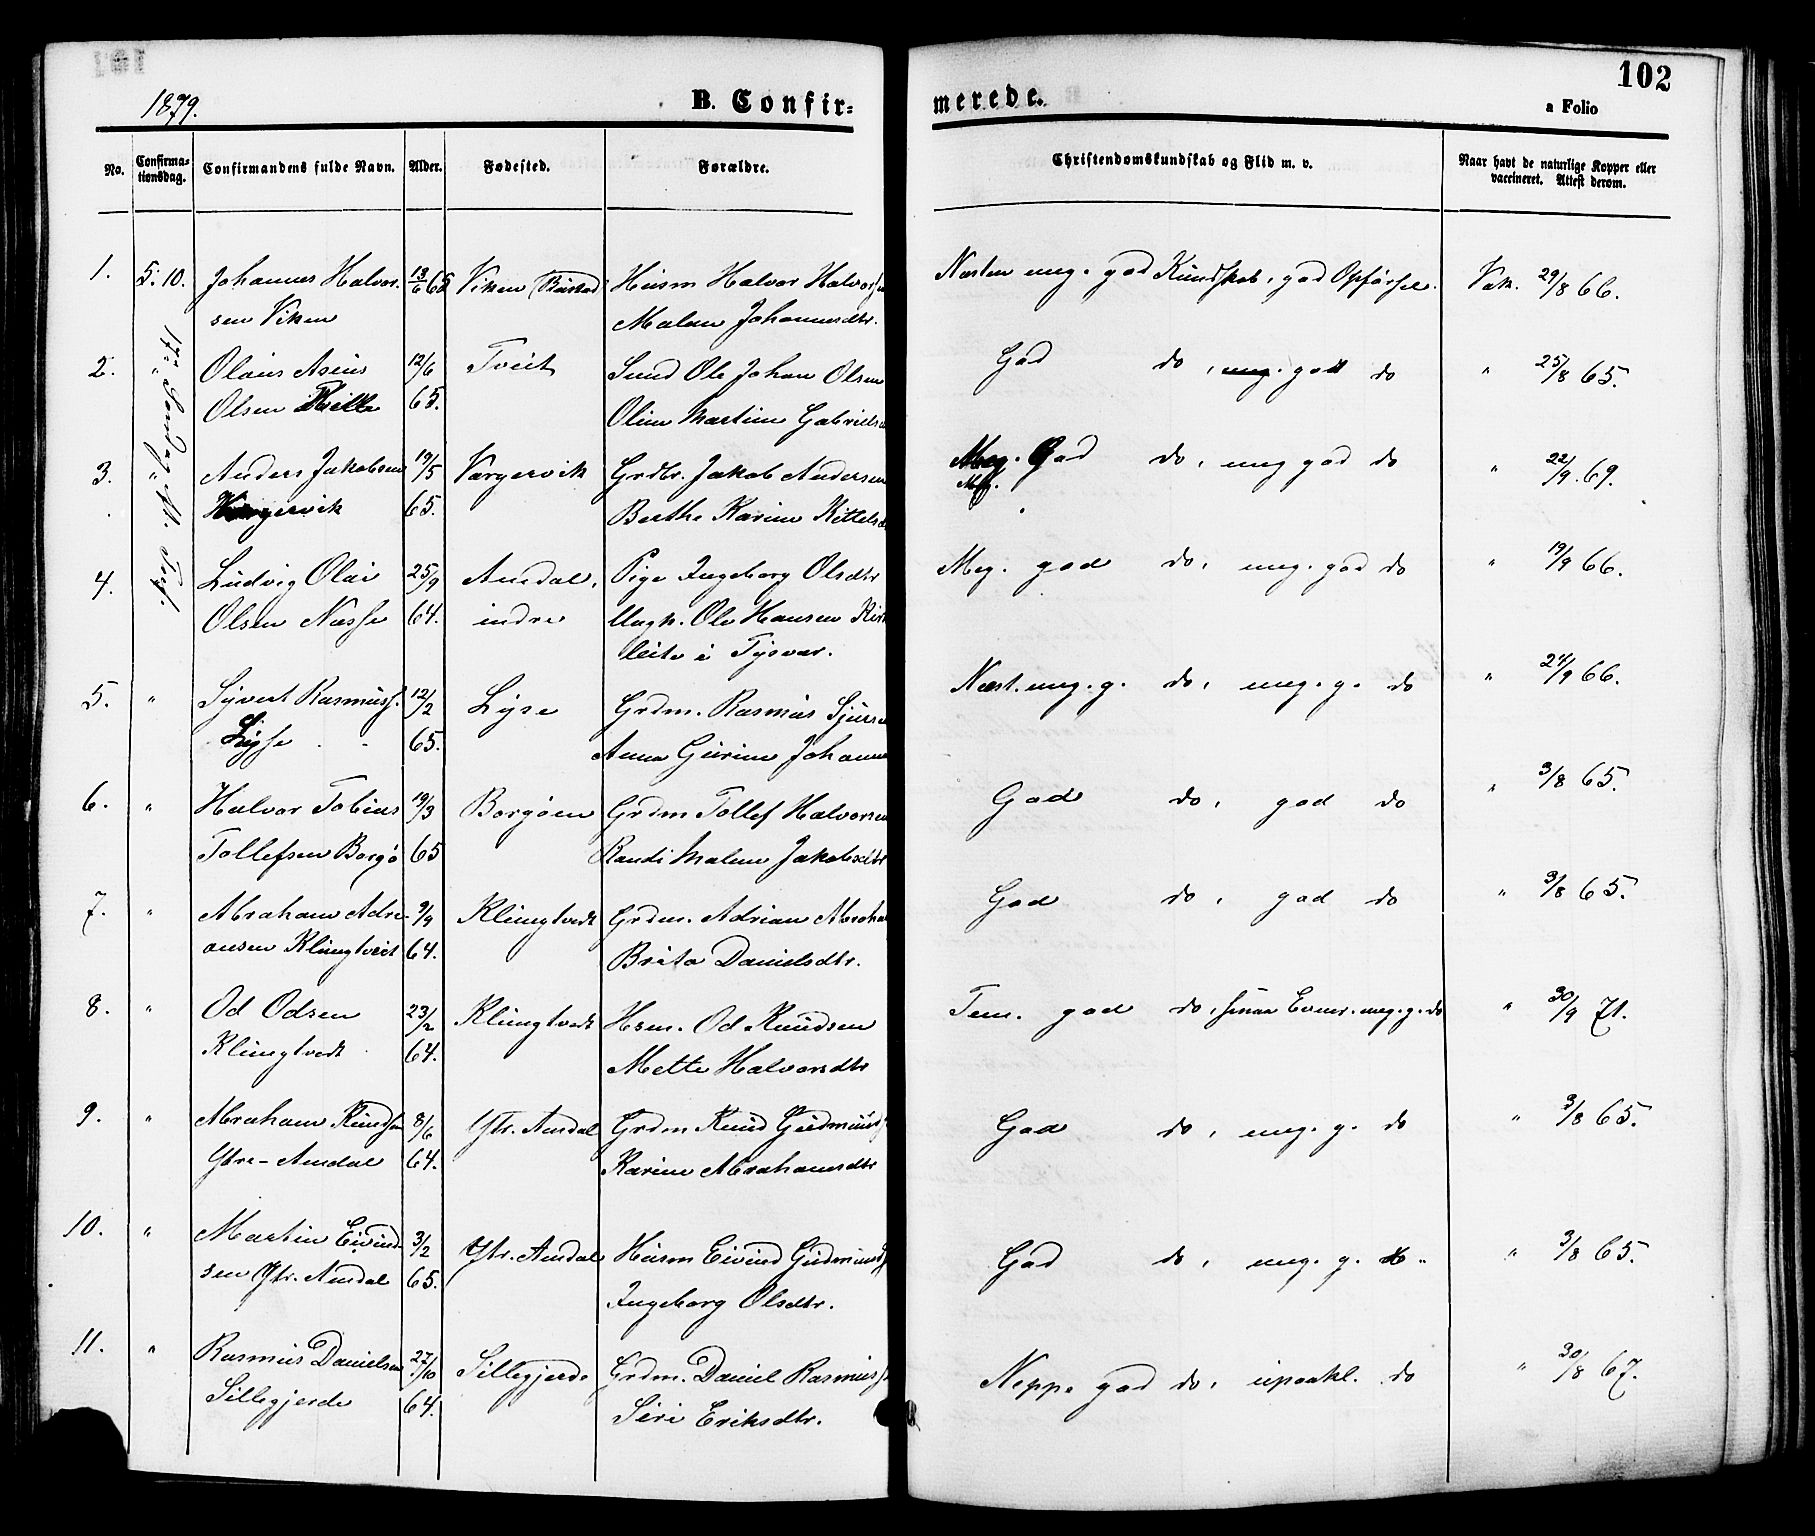 102
1879.
B. Confir-
merede.
a Folio
No.
Confirma-
tionsdag.
Confirmandens fulde Navn.
Alder.
Fødested.
Forældre.
Christendomskundskab og Flid m. v.
Naar havt de naturlige Kopper eller
vaccineret. Attest derom.
17de Søndag e. Tref.
1. 5. 10. Johannes Halvor- 13/6 65 Viken Husm Halvor Halvorsen Næsten meg. god Kundskab, god Opførsel. Vak. 29/8 66.
sen Viken Malene Johannesdtr.
2. Olaus Asius 12/6 Tveit Smed Ole Johan Olsen God do, meg. god do " 25/8 65.
Olsen 65. Oline Martine Gabriels
3. Anders Jakobsen 19/5 Vargervik Grdbr. Jakob Andersen Meg. God do, meg god do " 22/9. 69.
Vargervik 65. Berthe Karine Kittelsd
Meg.
4. Ludvig Olai 25/9 Amdal, Pige Ingeborg Olsdtr Meg. god do, meg. god do " 19/9 66.
Olsen Næsse 64. indre Ungk. Ole Hansen
leite i Tysvær.
5. " Syvert Rasmuss. 12/2 Lyse Grdm. Rasmus Sjurse Næst. meg. g. do, meg. g. do " 24/9 66.
Lysse 65. Anna Gurine Johanne
6. " Halvor Tobias 19/3 Borgøen Grdm Tollef Halvorsen God do, god do " 3/8 65.
Tollefsen Borgø 65 Randi Malene Jakobsdtr
7. " Abraham Adri- 9/9 Klungtvedt Grdm. Adrian Abraha God do, god do " 3/8 65.
ansen Klungtveit 64. Brita Danielsdtr.
8. " Od Odsen 23/2 Klungtvedt Hsm. Od Knudsen Tem. god do, smaa Evner. meg. g. do " 30/9 71.
Klungtvedt 64. Mette Halvorsdtr
9. " Abraham Knudsen 8/6 Ytr. Amdal Grdm Knud Gudmunds God do, meg. g. do " 3/8 65.
Ytre-Amdal 64. Karine Abrahamsdtr
10. " Martin Eivind- 3/2 Ytr. Amdal Husm Eivind Gudmunds God do, meg. g. do " 3/8 65.
sen Ytr. Amdal 65. Ingeborg Olsdtr.
11. " Rasmus Danielsen 27/10 Sillegjerde Grdm. Daniel Rasmuss Neppe god do, upaakl. do " 30/8 67.
Sillegjerde 64. Siri Eriksdtr.